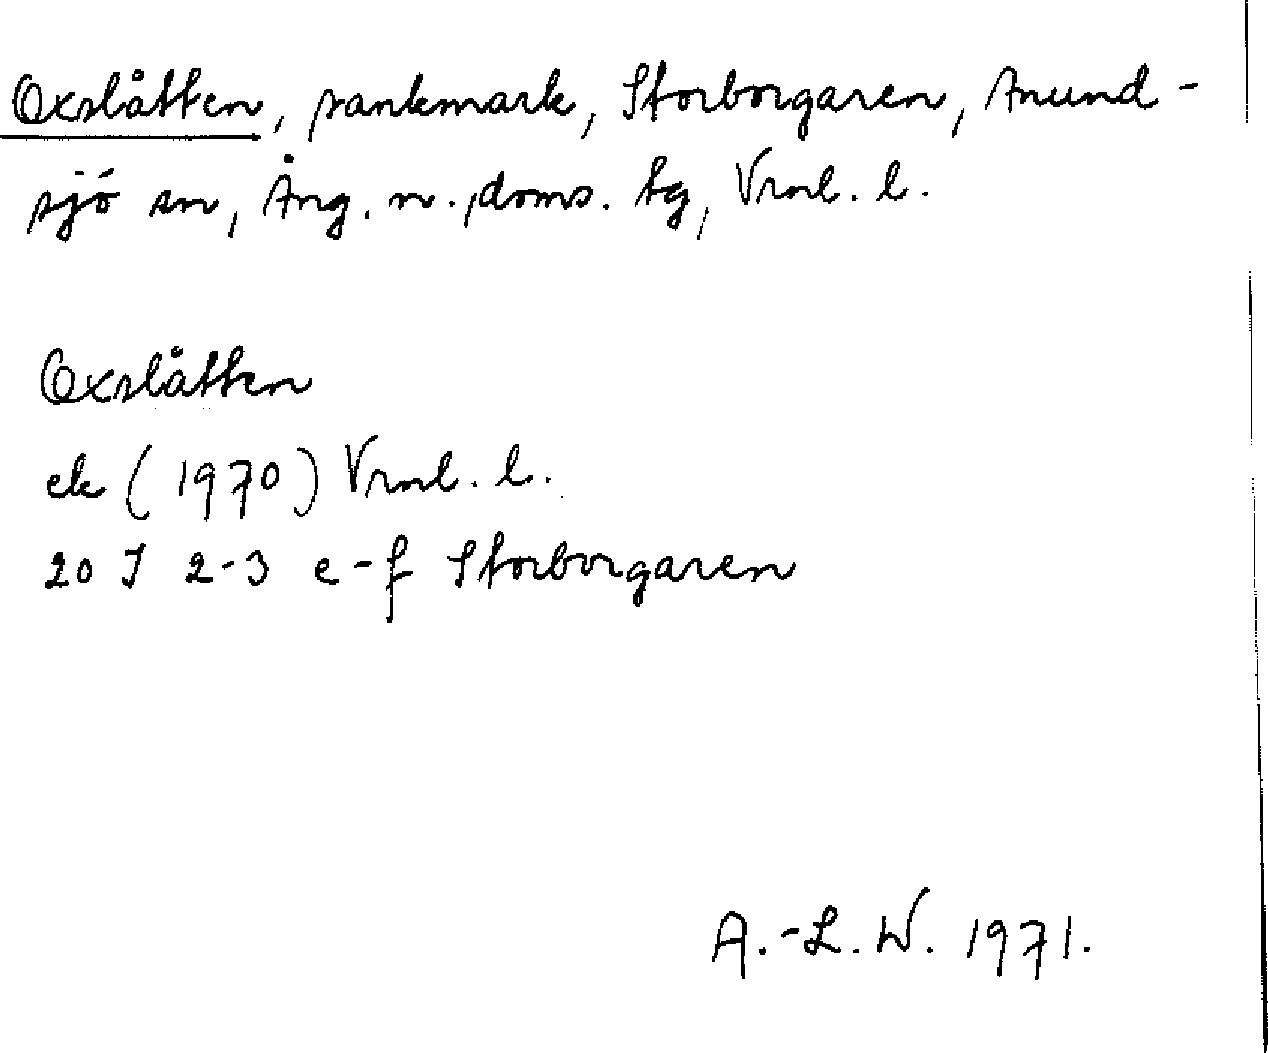 Oxslåtten, sankmark, Storborgaren, Anund-
sjö sn, Ång. n., doms. tg, Vrnl. l.
Oxslåtten
ek (1970) Vrnl. l.
20 I 2-3 e-f Storborgaren
A.-L. W. 1971.